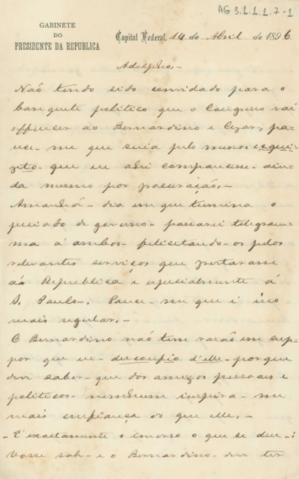 AG 3.1.1.1.7-1
GABINETE
DO
PRESIDENTE DA REPUBLICA
Capital Federal, 14 de Abril de 1896
Adolpho,
Não tendo sido convidado para o
banquete politico que o Campos vai
offerecer ao Bernardino e Cezar, pa-
rece-me que seria pelo menos exquizi-
zito, que eu ali comparecesse, ain-
da mesmo por procuração.
Amanhã, dia em que termina o
periodo de governo, passarei telegram-
ma á ambos felicitando-os pelos
relevantes serviços que prestaram
ás Republica e especialmente á
S. Paulo. Parece-me que é isso
mais regular.
O Bernardino não tem razão em sup-
por que eu desconfio d'elle, porque
deve saber que dos amigos pessoaes e
politicos nenhum inspira-me
mais confiança do que elle.
É exactamente o inverso o que se de-
sobre e o Bernardino deve ter